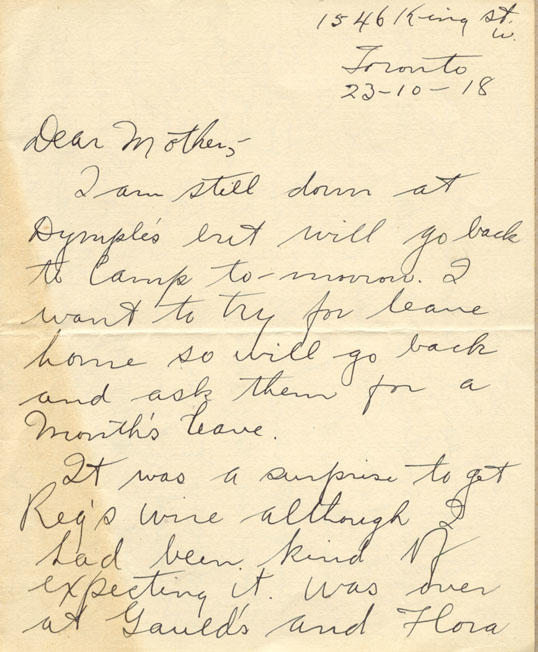 1546 King St.
W.
Toronto
23-10-18
Dear Mother,-
I am still down at
Dymple's but will go back
to Camp to-morrow. I
want to try for leave
home so will go back
and ask them for a
Month's leave.
It was a surprise to get
Reg's wire although I
had been kind of
expecting it. Was over
at Gauld's and Flora